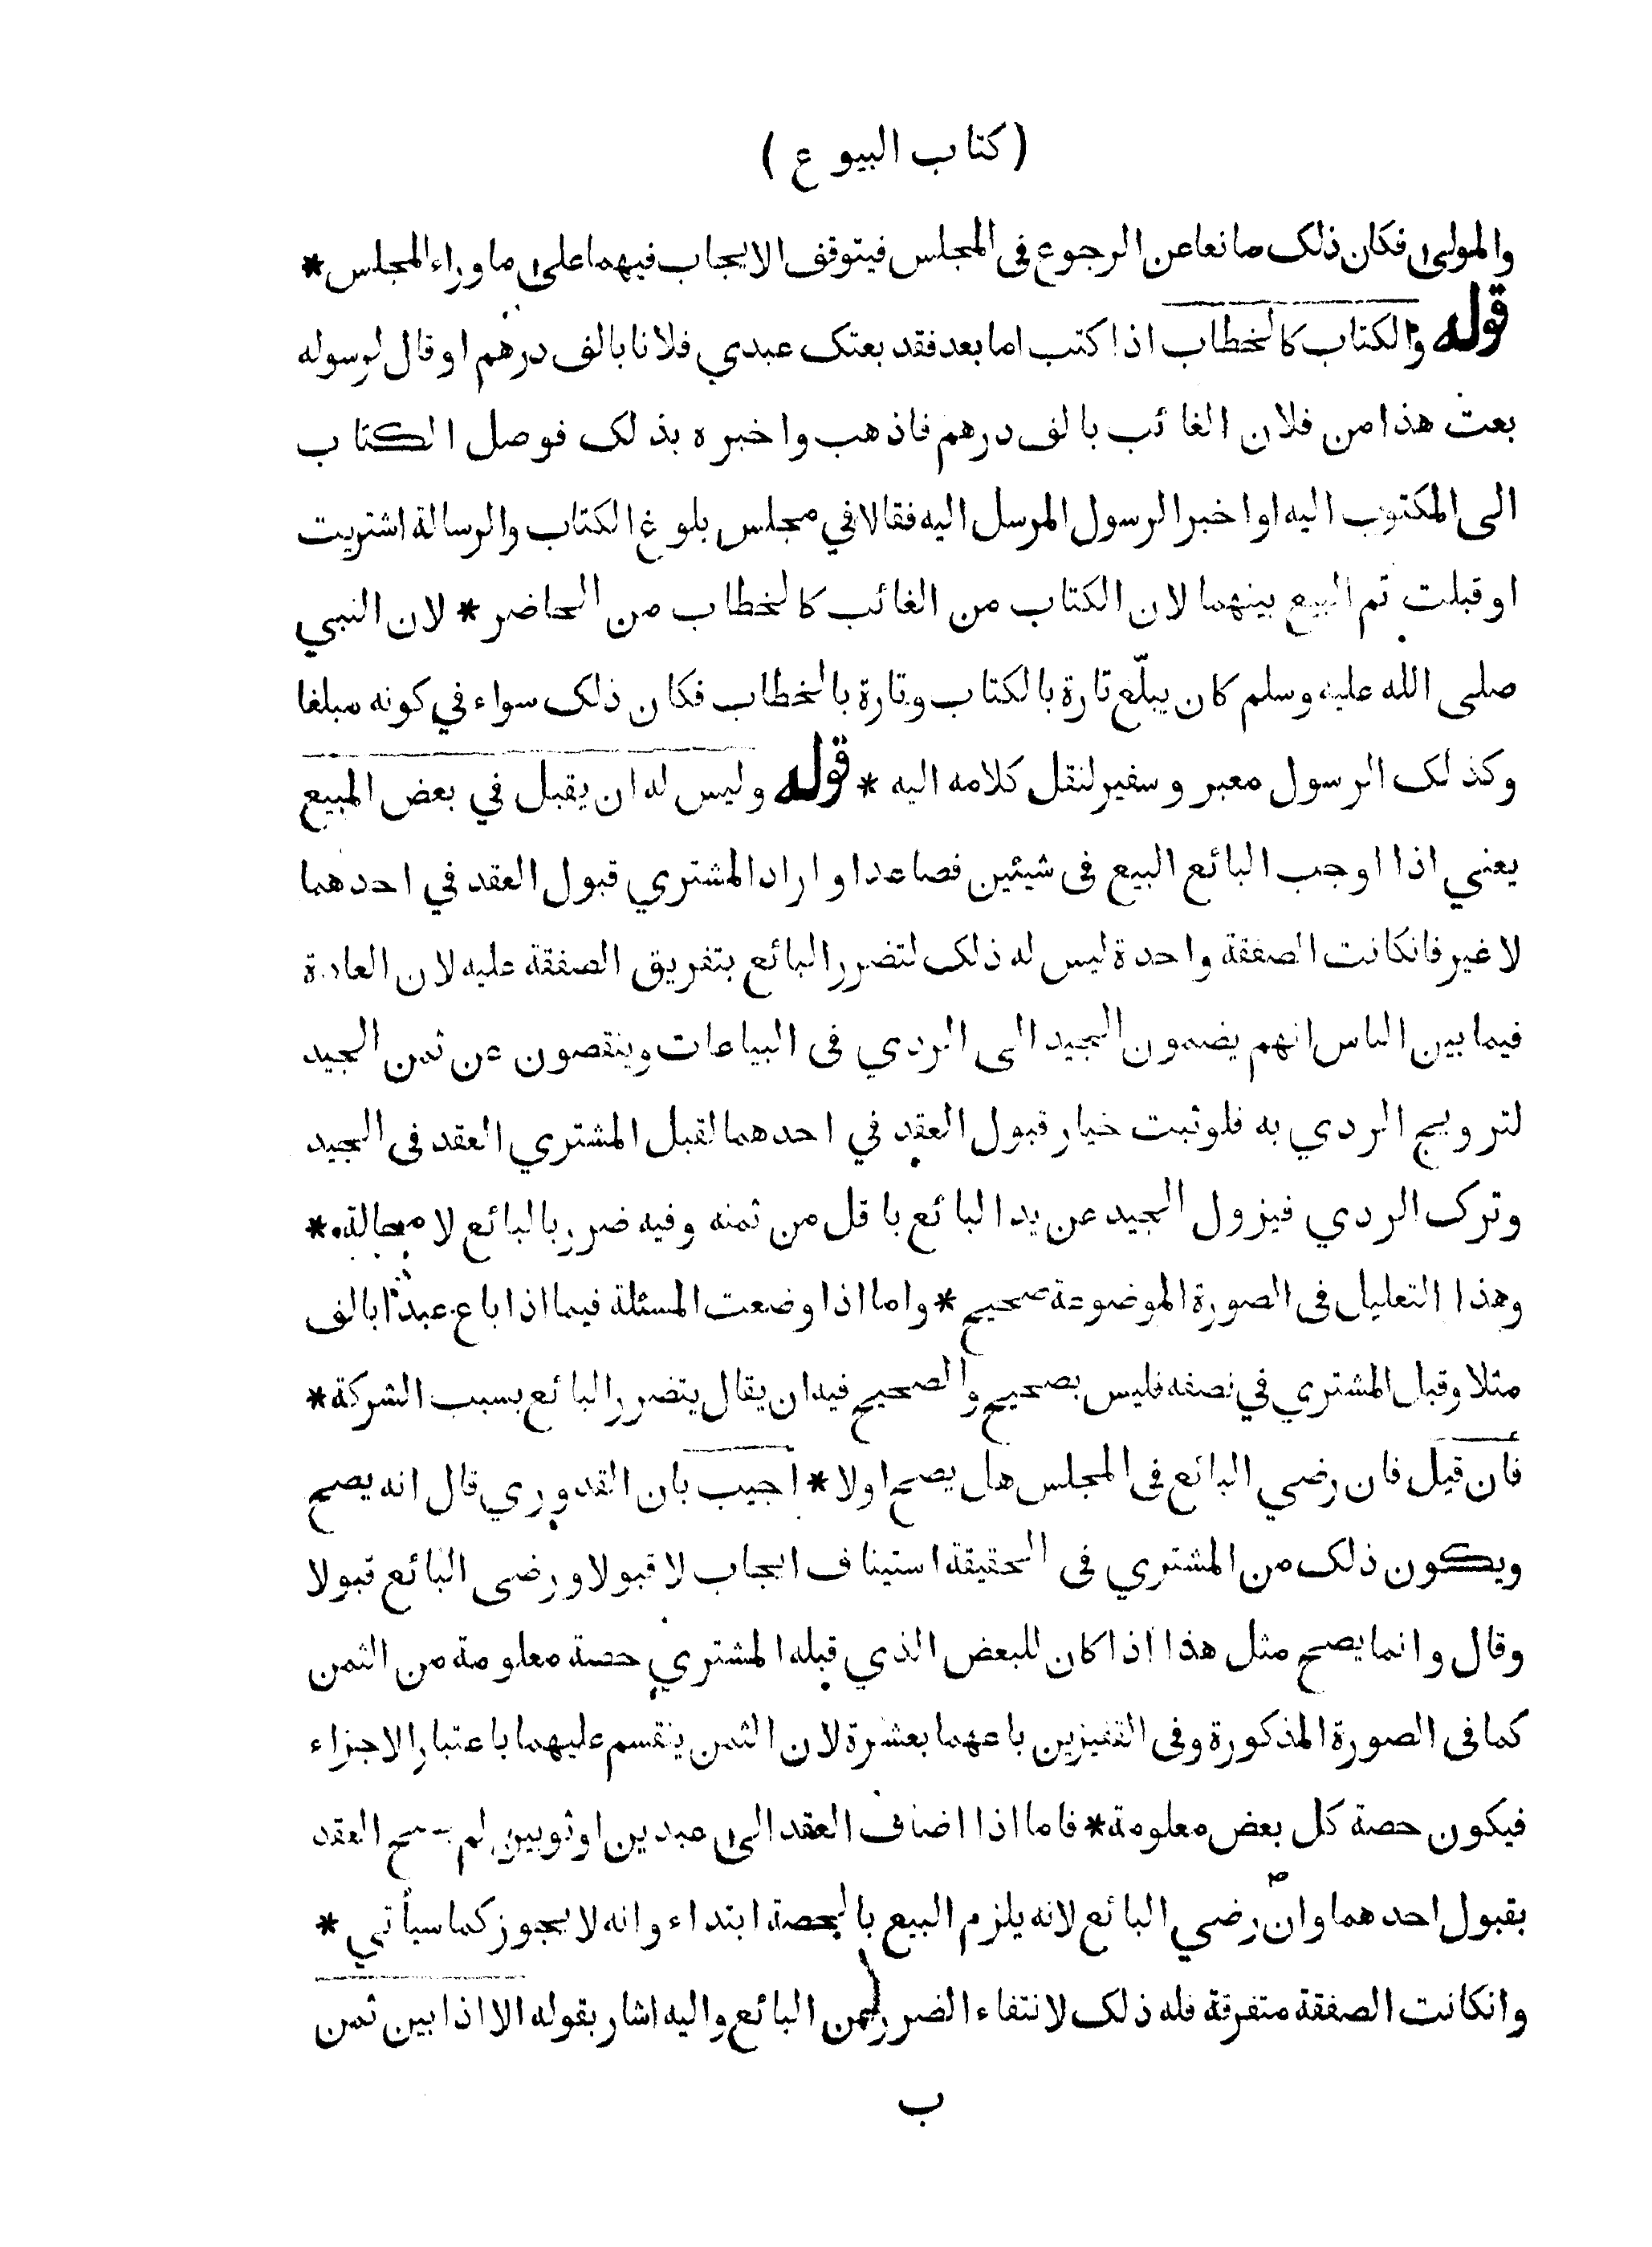 (كتاب البيوع)
والمولى فكان ذلك مانعا عن الرجوع في المجلس فيتوقف الايجاب فيهما على ما وراء المجلس *
قوله والكتاب كالخطاب اذا كتب اما بعد فقد بعتك عبدي فلانا بالف درهم او قال لرسوله
بعت هذا من فلان الغائب بالف درهم فاذهب واخبره بذلك فوصل الكتاب
الى المكتوب اليه او اخبر الرسول المرسل اليه فقالا في مجلس بلوغ الكتاب والرسالة اشتريت
او قبلت تم البيع بينهما لان الكتاب من الغائب كالخطاب من الحاضر * لان النبي
صلى الله عليه وسلم كان يبلّغ تارة بالكتاب وتارة بالخطاب فكان ذلك سواء في كونه مبلغا
وكذلك الرسول معبر وسفير لنقل كلامه اليه * قوله وليس له ان يقبل في بعض المبيع
يعني اذا اوجب البائع البيع في شيئين فصاعدا واراد المشتري قبول العقد في احدهما
لا غير فانكانت الصفقة واحدة ليس له ذلك لتضرر البائع بتفريق الصفقة عليه لان العادة
فيما بين الناس انهم يضمون الجيد الى الردي في البياعات وينقصون عن ثمن الجيد
لترويج الردي به فلو ثبت خيار قبول العقد في احدهما لقبل المشتري العقد في الجيد
وترك الردي فيزول الجيد عن يد البائع باقل من ثمنه وفيه ضرر بالبائع لا محالة *
وهذا التعليل في الصورة الموضوعة صحيح * واما اذا وضعت المسئلة فيما اذا باع عبدا بالف
مثلا وقبل المشتري في نصفه فليس بصحيح والصحيح فيه ان يقال يتضرر البائع بسبب الشركة *
فان قيل فان رضي البائع في المجلس هل يصح اولا * اجيب بان القدوري قال انه يصح
ويكون ذلك من المشتري في الحقيقة استيناف ايجاب لا قبولا ورضى البائع قبولا
وقال وانما يصح مثل هذا اذا كان للبعض الذي قبله المشتري حصة معلومة من الثمن
كما في الصورة المذكورة وفي القفيزين باعهما بعشرة لان الثمن ينقسم عليهما باعتبار الاجزاء
فيكون حصة كل بعض معلومة * فاما اذا اضاف العقد الى عبدين او ثوبين لم يصح العقد
بقبول احدهما وان رضي البائع لانه يلزم البيع بالحصة ابتداء وانه لا يجوز كما سيأتي *
وانكانت الصفقة متفرقة فله ذلك لانتفاء الضرر من البائع واليه اشار بقوله الا اذا بين ثمن
ب